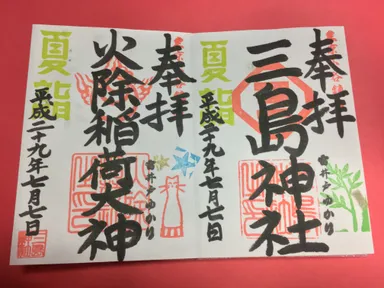 奉拝
三島神社
雷井戸ゆかり
夏詣
平成二十九年七月七日
奉拝
火除稲荷大神
雷井戸ゆかり
夏詣
平成二十九年七月七日